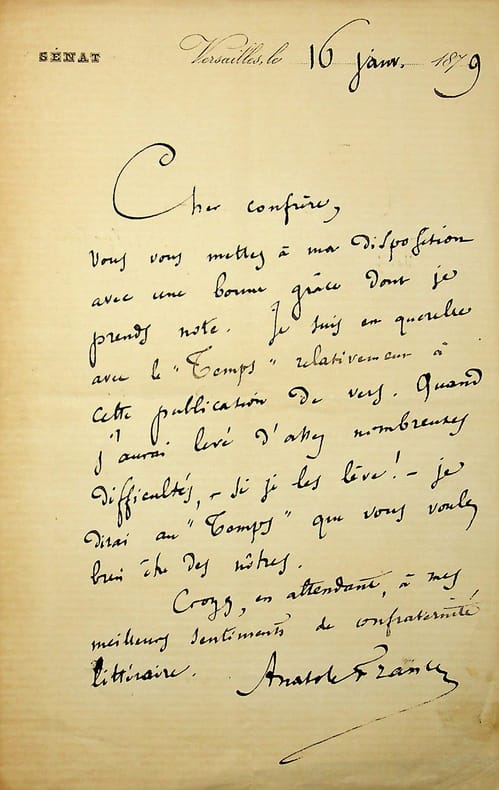 SÉNAT
Versailles, le 16 janv. 1879
Cher confrère,
Vous vous mettez à ma disposition
avec une bonne grâce dont je
prends note. Je suis en querelle
avec le "Temps" relativement à
cette publication de vers. Quand
j'aurai levé d'assez nombreuses
difficultés, – si je les lève! – je
dirai au "Temps" que vous voulez
bien être des nôtres.
Croyez, en attendant, à mes
meilleurs sentiments de confraternité
littéraire. Anatole France